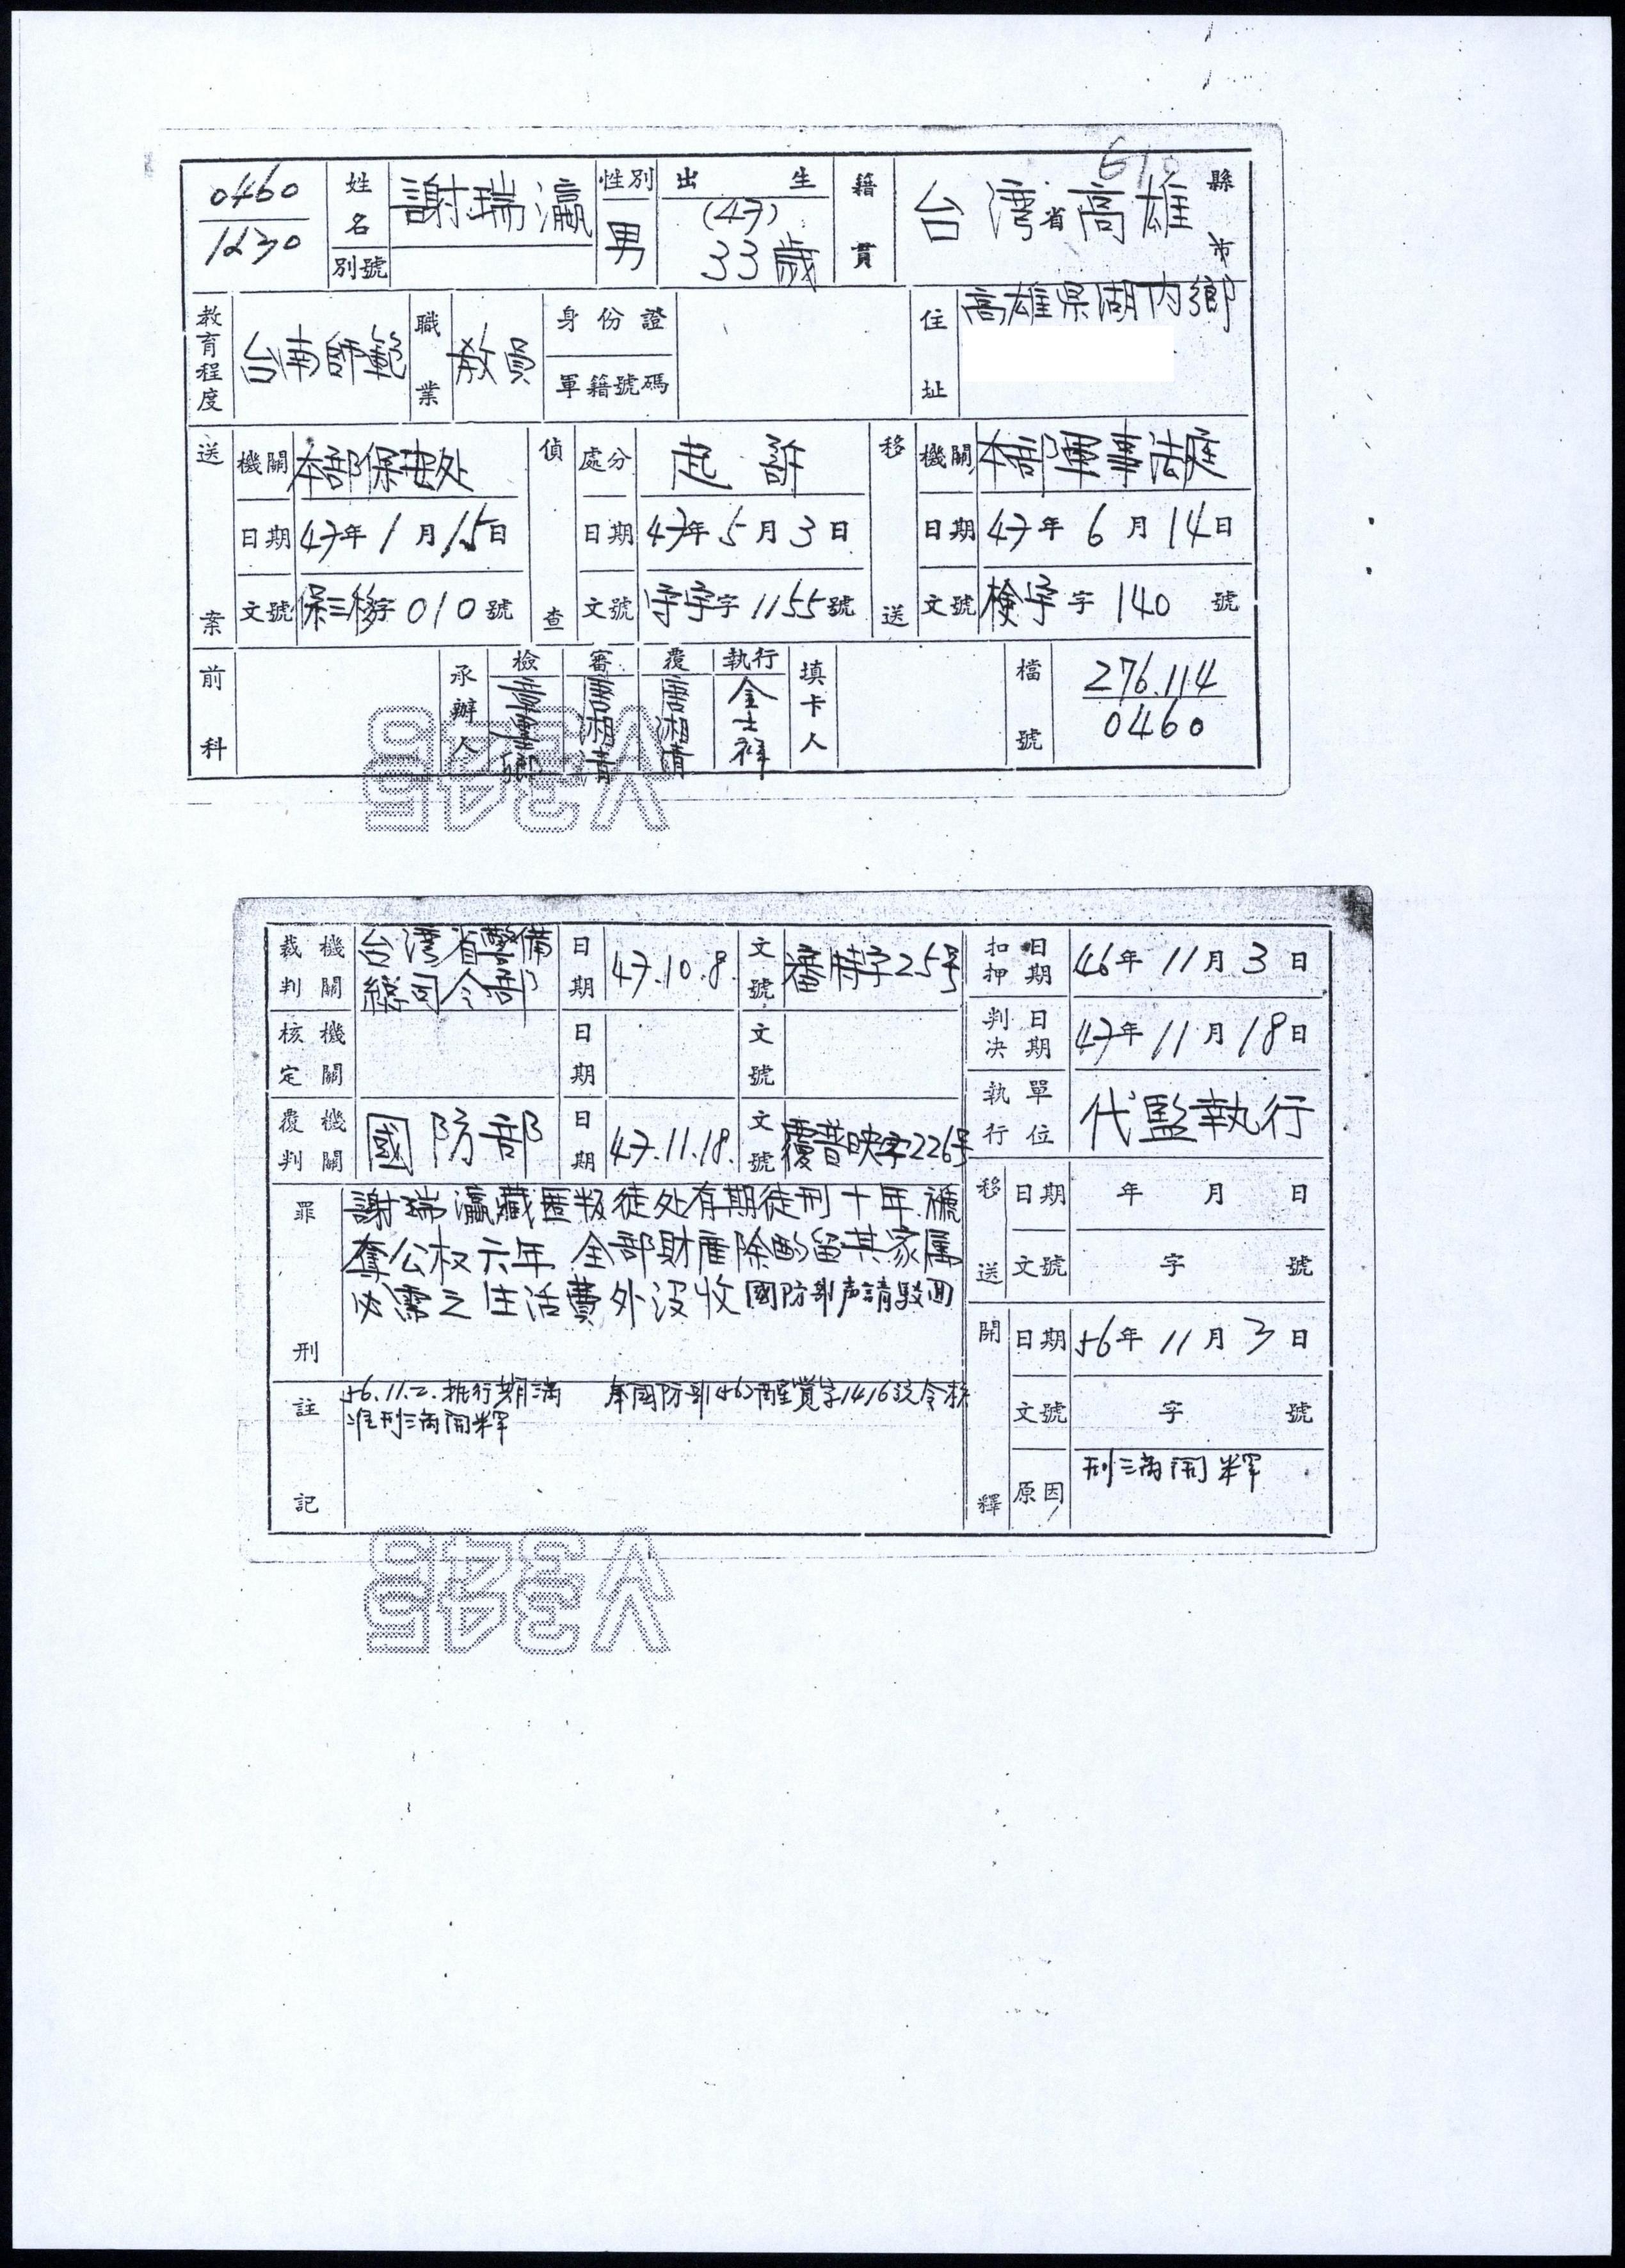 0460
1230
姓名 謝瑞瀛
別號
性別 男
出生 (47) 33歲
籍貫 台灣省高雄縣市
教育程度 台南師範
職業 教員
身份證
軍籍號碼
住址 高雄県湖内鄉
送案 機關 本部保安处
日期 47年1月15日
文號 保三移字010號
偵查 處分 起訴
日期 47年5月3日
文號 字1155號
移送 機關 本部軍事法庭
日期 47年6月14日
文號 檢字字140號
前科
承辦人 檢 審 唐湘清 覆 唐湘清 執行 金士祥
填卡人
檔號 276.114
0460
裁判機關 台灣省警備總司令部 日期 47.10.8. 文號 審特字25号
核定機關 日期 文號
覆判機關 國防部 日期 47.11.18. 文號 覆普映字226号
罪刑 謝瑞瀛藏匿叛徒处有期徒刑十年褫
奪公权六年 全部財產除酌留其家属
必需之生活費外沒收國防部声請駁回
註記 56.11.2.執行期滿 奉國防部(46)覺字1416號令核
准刑滿開釋
扣押日期 46年11月3日
判決日期 47年11月18日
執行單位 代監執行
移送 日期 年 月 日
文號 字 號
開釋 日期 56年11月3日
文號 字 號
原因 刑滿開釋